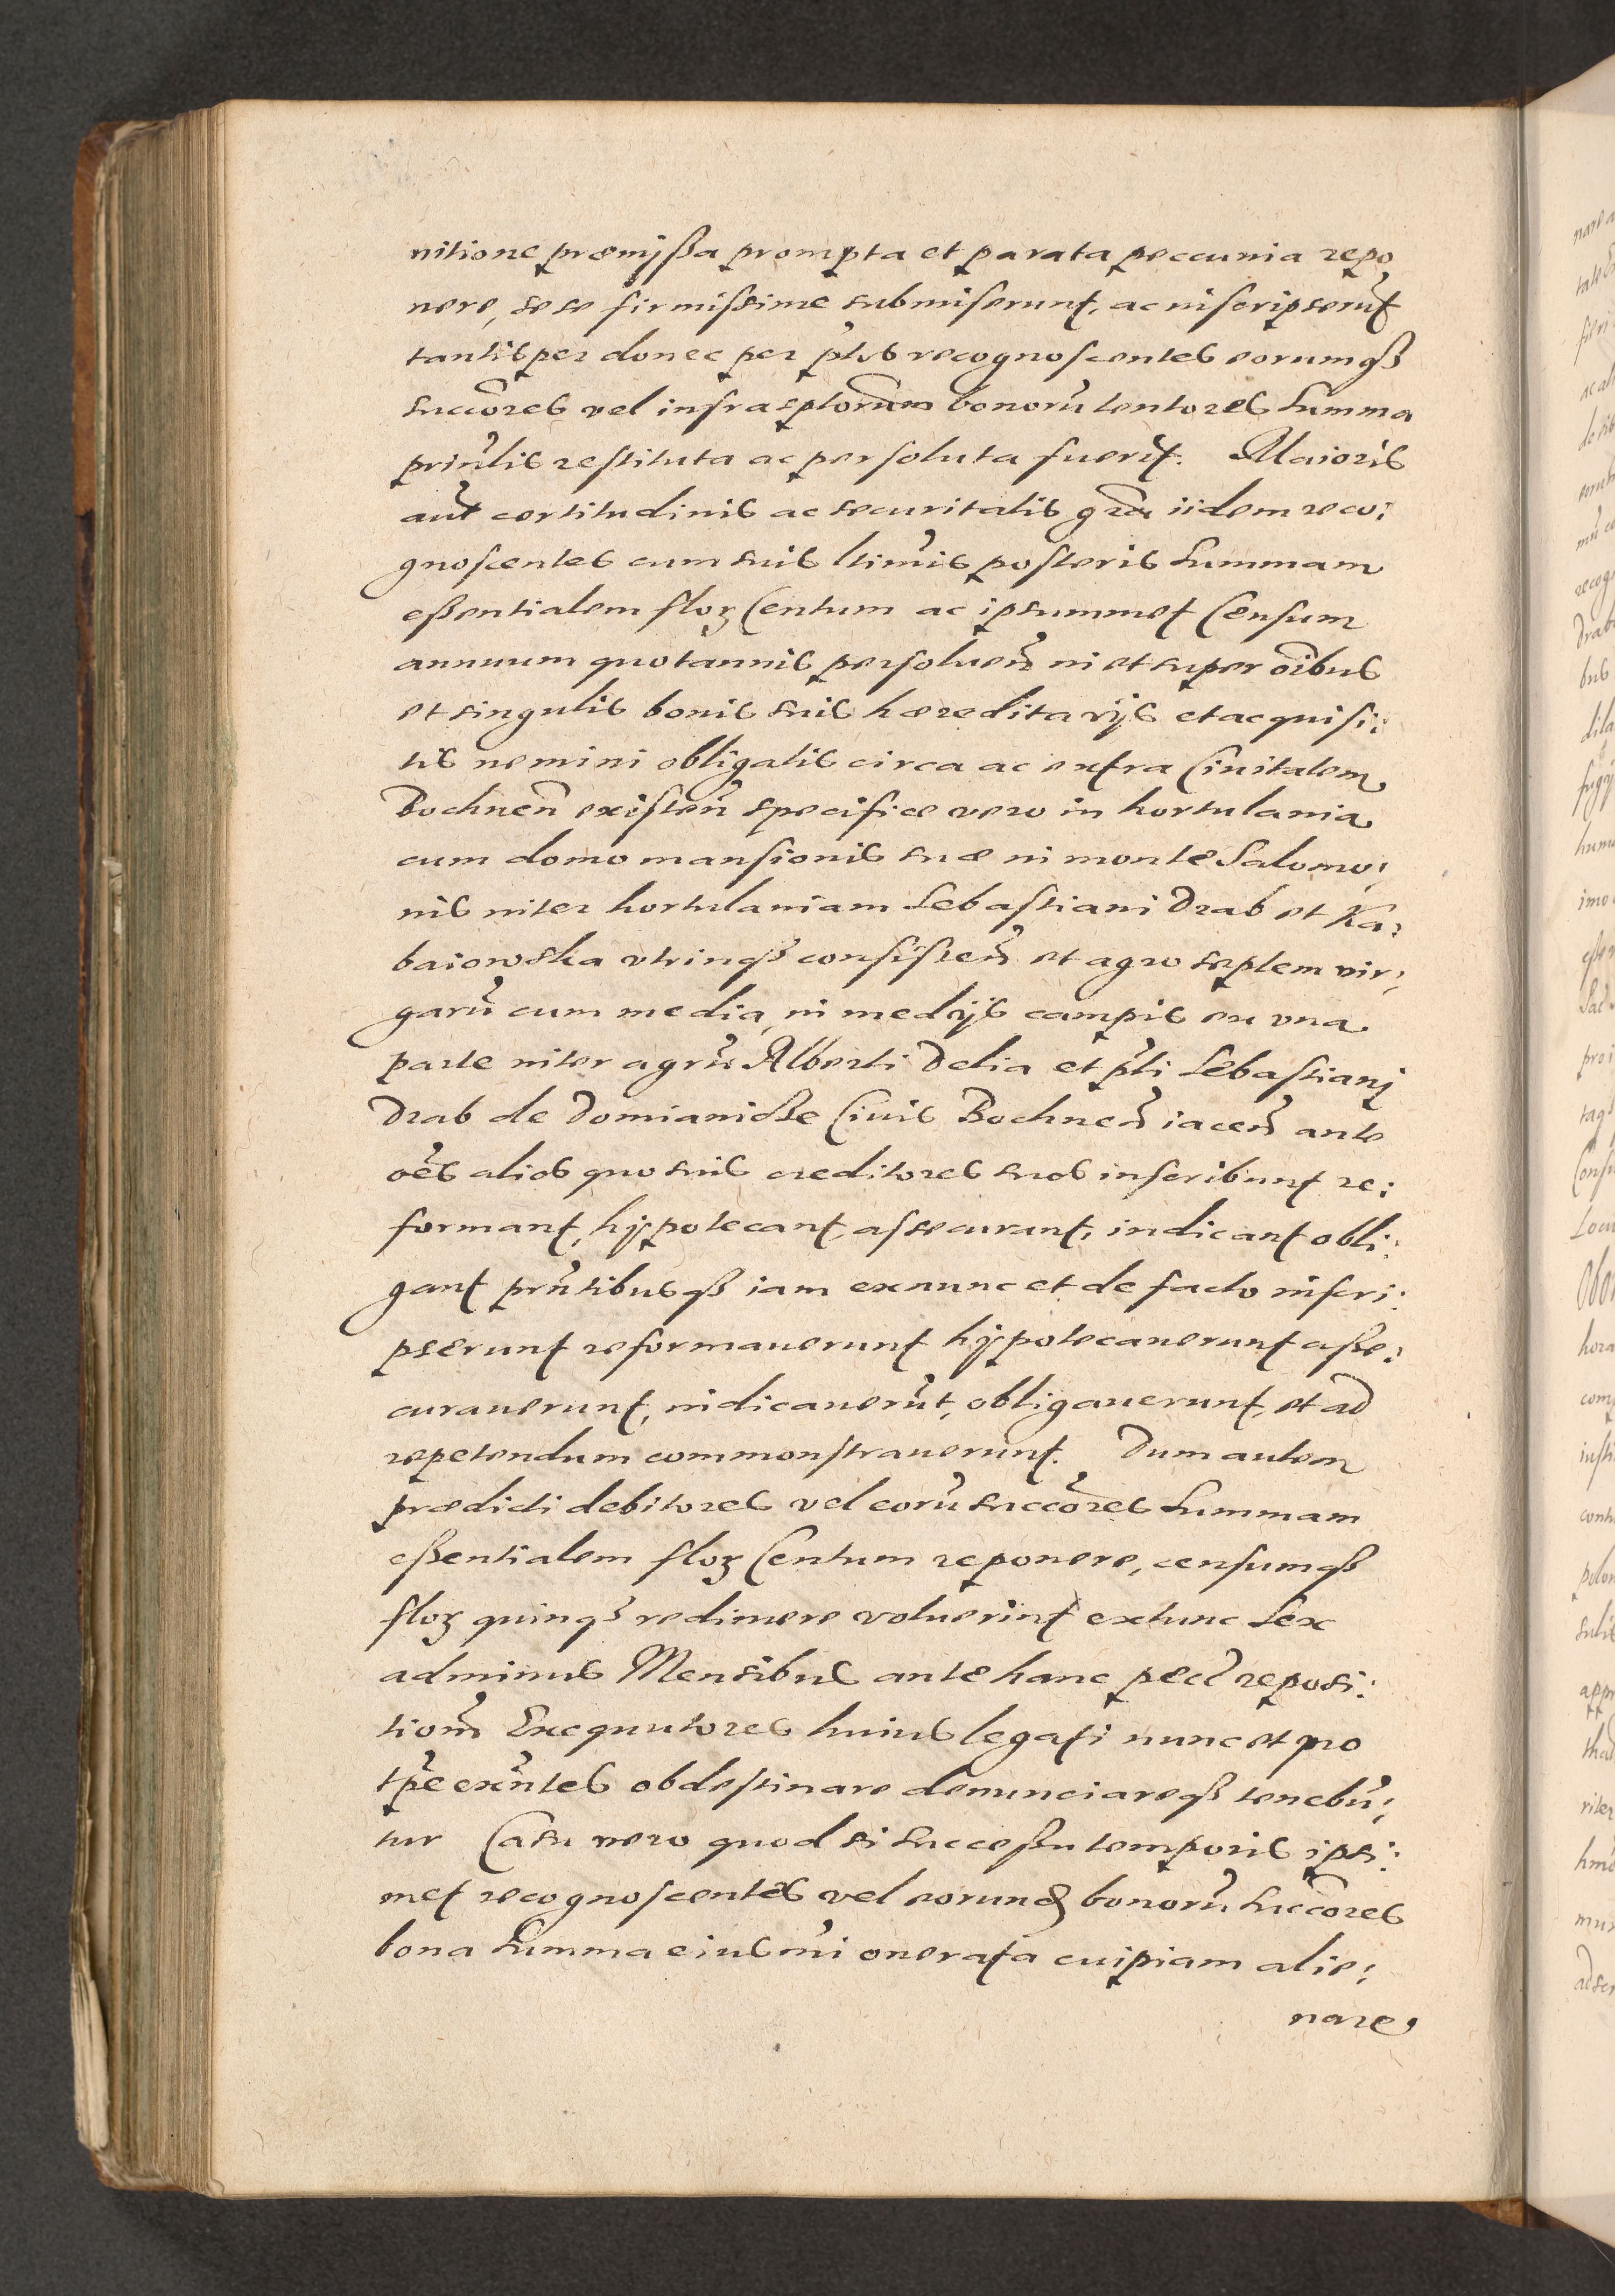 nitione præmjßa prompta et parata peccunia repo
nere, sese firmissime submiserunt, ac inscripserūt
tantisper donec per p̃tos recognoscentes eorumqß
succões vel infrasptorum bonorū tentores summa
prinĉlis restituta ac persoluta fuerit. Maioris
aut̃ certitudinis ac securitatis grã iidem reco:
gnoscentes cum suis ltimis posteris summam
eßentialem floꝝ Centum ac ipsummet Censum
annuum quotannis persoluen̄ in et super oĩbus
et singulis bonis suis hæreditarijs et acquisi:
tis nemini obligatis circa ac extra Ciuitatem
Bochnen̄ existen̄ specifice vero in hortulania
cum domo mansionis suæ in monte Salomo:
nis inter hortulaniam Sebastiani Drab et Ka:
baiowska vtrinqß consisten̄ et agro septem vir:
garū cum media, in medijs campis ex vna
parte inter agrū Alberti Delia et p̃ti Sebastianj
Drab de Domianicße Ciuis Bochnen̄ iacen̄ ante
oẽs alios quosuis creditores suos inscribunt re:
formant, hÿpotecant, assecurant, indicant obli:
gant prñtibusqß iam exnunc et de facto inscri:
pserunt reformauerunt hÿpotecauerunt aße:
curauerunt, indicauerūt, obligauerunt, et ad
repetendum commonstrauerunt. Dum autem
prædicti debitores vel eorū succões summam
eßentialem floꝝ Centum reponere, censumqß
floꝝ quinqß redimere voluerint extunc sex
adminus Mensibus ante hanc pecc̃ reposi:
tionē Exequutores huius legati nunc et pro
tp̃e exñtes obdestinare denunciareqß tenebū:
tur Casu vero quod si succeßu temporis ipsi:
met recognoscentes vel eorund̃ bonorū succões
bona summa eiusm̃i onerata cuipiam alie:
nare